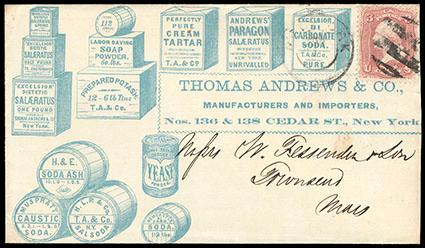 EXCELSIOR
DIETETIC
SALÆRATUS
HALF POUND
EXCELSIOR
DIETETIC
SALÆRATUS
ONE POUND
THOMAS ANDREWS & CO.
New York.
112
LABOR SAVING
SOAP
POWDER.
60 lbs.
PREPARED POTASH
12 - 6 lb Tins
T.A. & Co.
PERFECTLY
PURE
CREAM
TARTAR
T.A. & Co
ANDREWS'
PARAGON
SALÆRATUS
NEW YORK
UNRIVALLED
EXCELSIOR
BI
CARBONATE
SODA.
T.A. & Co.
PURE
3
U.S.
THOMAS ANDREWS & CO.,
MANUFACTURERS AND IMPORTERS,
Nos. 136 & 138 CEDAR ST., New York
H. & E.
SODA ASH
MUSPRATT
CAUSTIC
SODA.
H. L. P. & Co.
T.A. & Co.
N.Y.
SAL SODA
YEAST
POWDER.
SODA
112 lbs
Messrs W. Fessenden & Son
Townsend
Mass